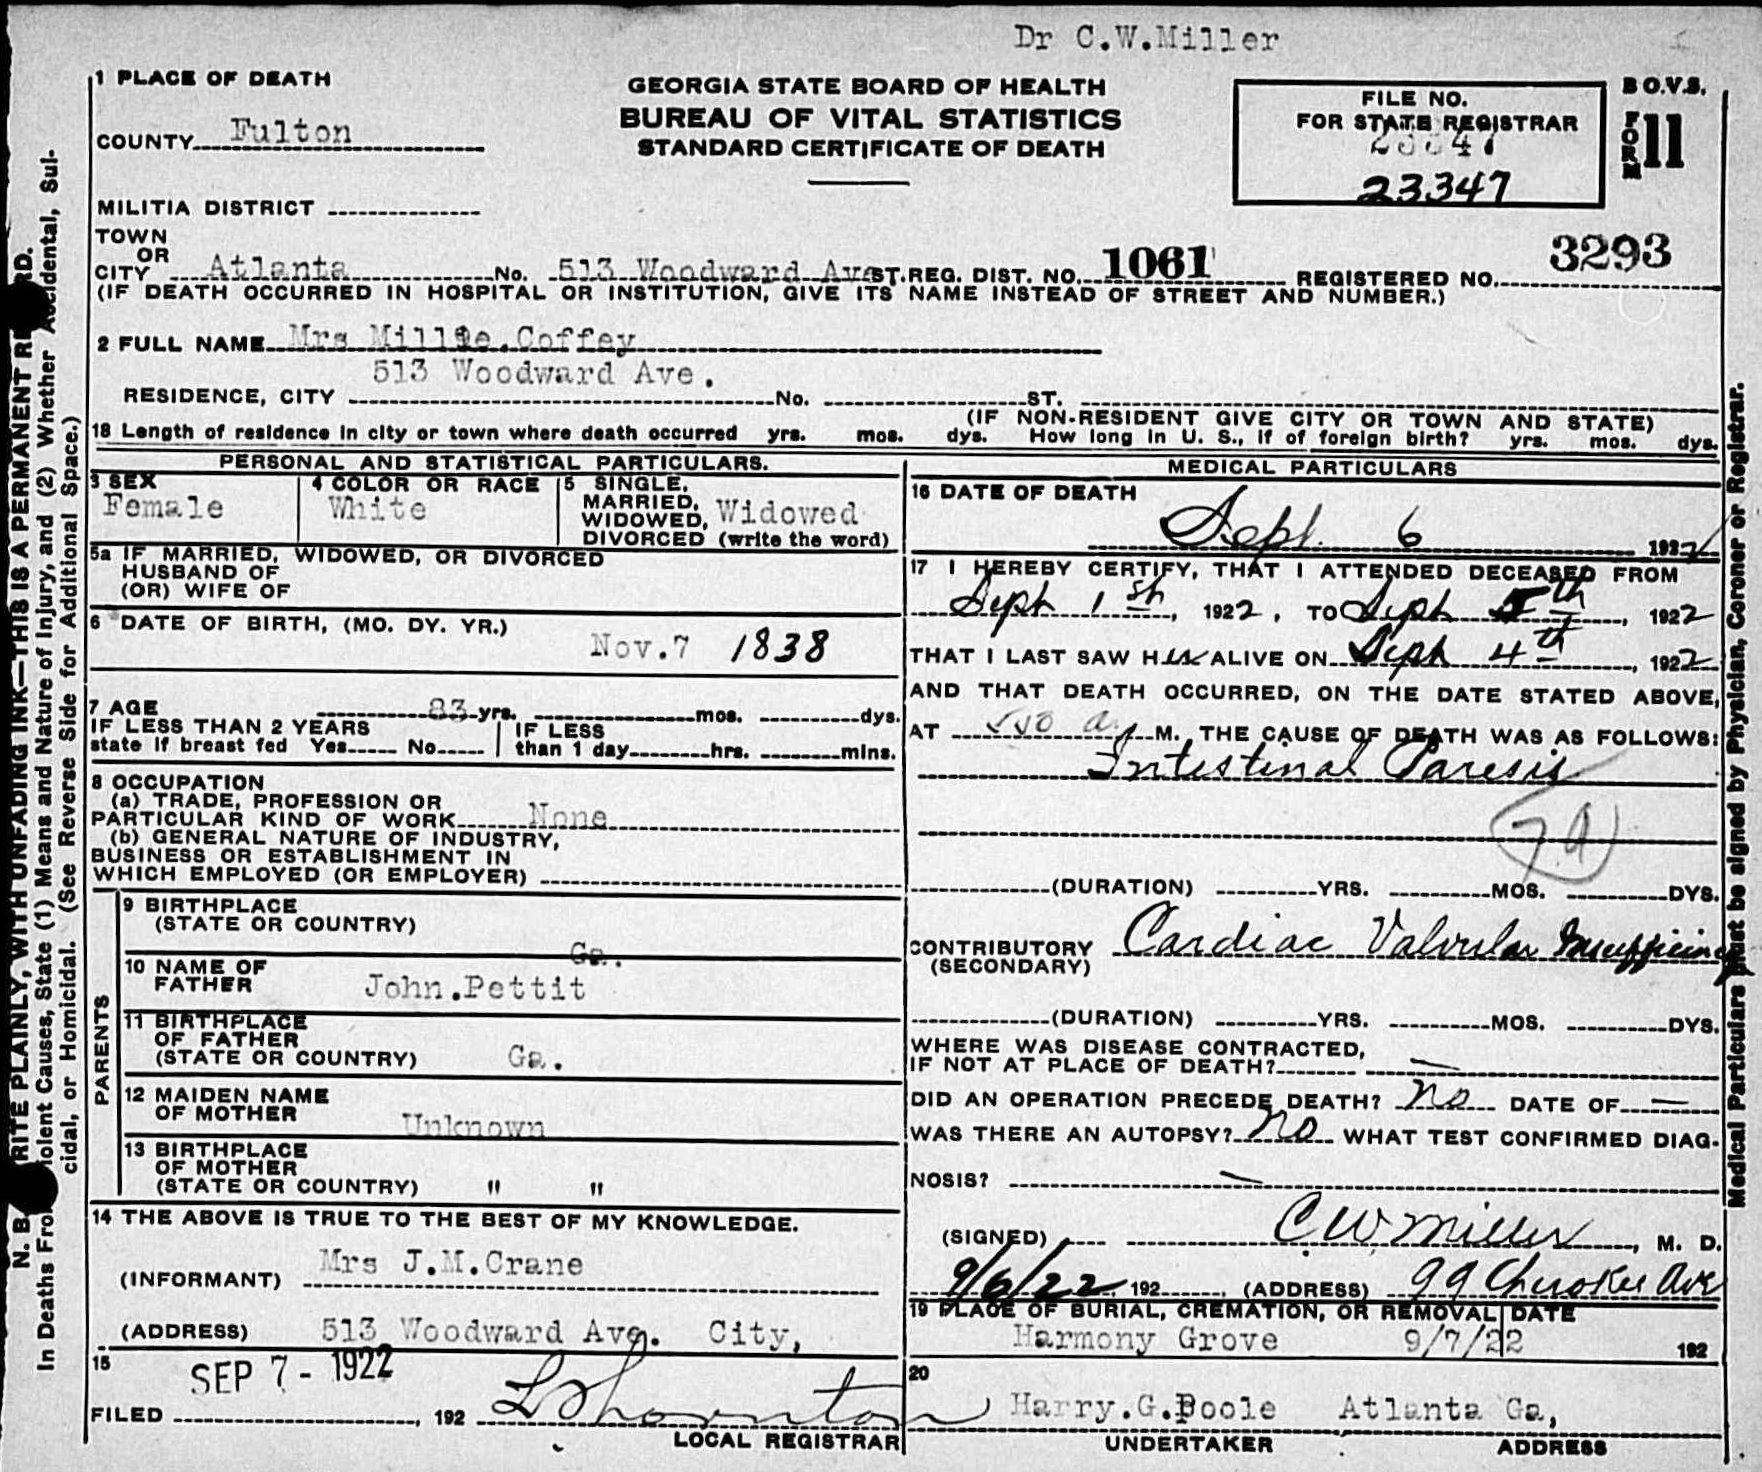 Dr C.W.Miller
1 PLACE OF DEATH
GEORGIA STATE BOARD OF HEALTH
BUREAU OF VITAL STATISTICS
STANDARD CERTIFICATE OF DEATH
FILE NO.
FOR STATE REGISTRAR
23347
B O.V.S.
FORM 11
COUNTY Fulton
MILITIA DISTRICT
TOWN
OR
CITY Atlanta No. 513 Woodward Ave ST. REG. DIST. NO. 1061 REGISTERED NO. 3293
(IF DEATH OCCURRED IN HOSPITAL OR INSTITUTION, GIVE ITS NAME INSTEAD OF STREET AND NUMBER.)
2 FULL NAME Mrs Millie.Coffey
513 Woodward Ave.
RESIDENCE, CITY No. ST.
(IF NON-RESIDENT GIVE CITY OR TOWN AND STATE)
18 Length of residence in city or town where death occurred yrs. mos. dys. How long in U. S., if of foreign birth? yrs. mos. dys.
PERSONAL AND STATISTICAL PARTICULARS.
3 SEX
Female
4 COLOR OR RACE
White
5 SINGLE,
MARRIED,
WIDOWED,
DIVORCED (write the word)
Widowed
5a IF MARRIED, WIDOWED, OR DIVORCED
HUSBAND OF
(OR) WIFE OF
6 DATE OF BIRTH, (MO. DY. YR.)
Nov.7 1838
7 AGE 83 yrs. mos. dys.
IF LESS THAN 2 YEARS
state if breast fed Yes No
IF LESS
than 1 day hrs. mins.
8 OCCUPATION
(a) TRADE, PROFESSION OR
PARTICULAR KIND OF WORK None
(b) GENERAL NATURE OF INDUSTRY,
BUSINESS OR ESTABLISHMENT IN
WHICH EMPLOYED (OR EMPLOYER)
PARENTS
9 BIRTHPLACE
(STATE OR COUNTRY)
Ga.
10 NAME OF
FATHER John.Pettit
11 BIRTHPLACE
OF FATHER
(STATE OR COUNTRY) Ga.
12 MAIDEN NAME
OF MOTHER Unknown
13 BIRTHPLACE
OF MOTHER
(STATE OR COUNTRY) " "
14 THE ABOVE IS TRUE TO THE BEST OF MY KNOWLEDGE.
(INFORMANT) Mrs J.M.Crane
(ADDRESS) 513 Woodward Ave. City,
15 SEP 7 - 1922
FILED , 192
LOCAL REGISTRAR
MEDICAL PARTICULARS
16 DATE OF DEATH
Sept. 6 1922
17 I HEREBY CERTIFY, THAT I ATTENDED DECEASED FROM
Sept 1st, 1922, TO Sept 5th, 1922
THAT I LAST SAW Her ALIVE ON Sept 4th, 1922
AND THAT DEATH OCCURRED, ON THE DATE STATED ABOVE,
AT a M. THE CAUSE OF DEATH WAS AS FOLLOWS:
Intestinal Paresis
(DURATION) YRS. MOS. DYS.
CONTRIBUTORY Cardiac Valvular Insufficiency
(SECONDARY)
(DURATION) YRS. MOS. DYS.
WHERE WAS DISEASE CONTRACTED,
IF NOT AT PLACE OF DEATH? —
DID AN OPERATION PRECEDE DEATH? no DATE OF —
WAS THERE AN AUTOPSY? no WHAT TEST CONFIRMED DIAG-
NOSIS? —
(SIGNED) C W Miller, M. D.
9/6/22 192 , (ADDRESS) 99 Cherokee Ave
19 PLACE OF BURIAL, CREMATION, OR REMOVAL DATE
Harmony Grove 9/7/22 192
20
Harry.G.Poole Atlanta Ga,
UNDERTAKER ADDRESS
N. B. RITE PLAINLY, WITH UNFADING INK—THIS IS A PERMANENT RE RD.
In Deaths Fro iolent Causes, State (1) Means and Nature of Injury, and (2) Whether Accidental, Sui-
cidal, or Homicidal. (See Reverse Side for Additional Space.)
Medical Particulars must be signed by Physician, Coroner or Registrar.